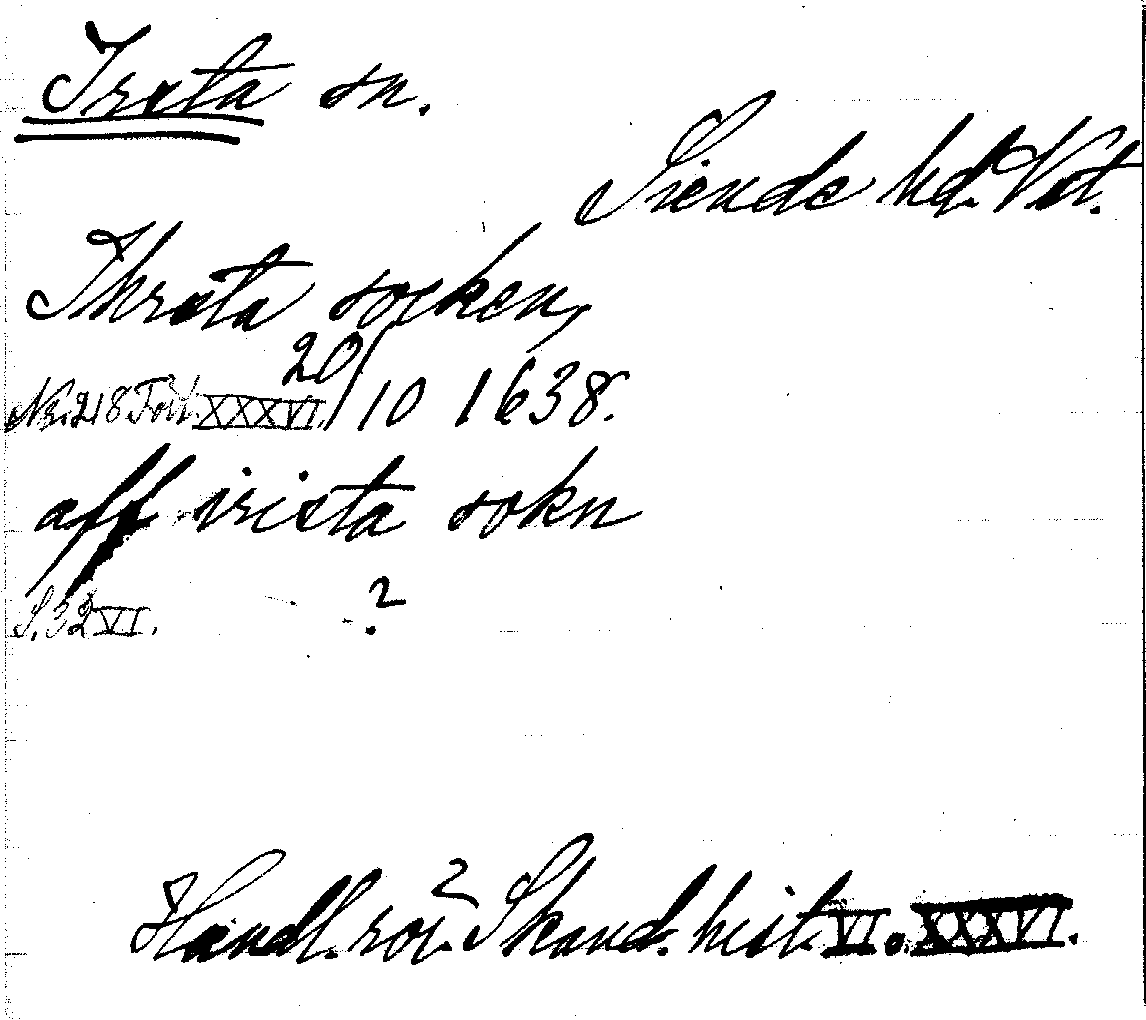 Irsta sn.
Siende hd. Vstm.
Ihrsta socken,
Nr. 218 Fört. XXXVI. 20/10 1638.
aff irista sokn
S. 32 VI. ?
Handl. rör. Skand. hist. VI o. XXXVI.